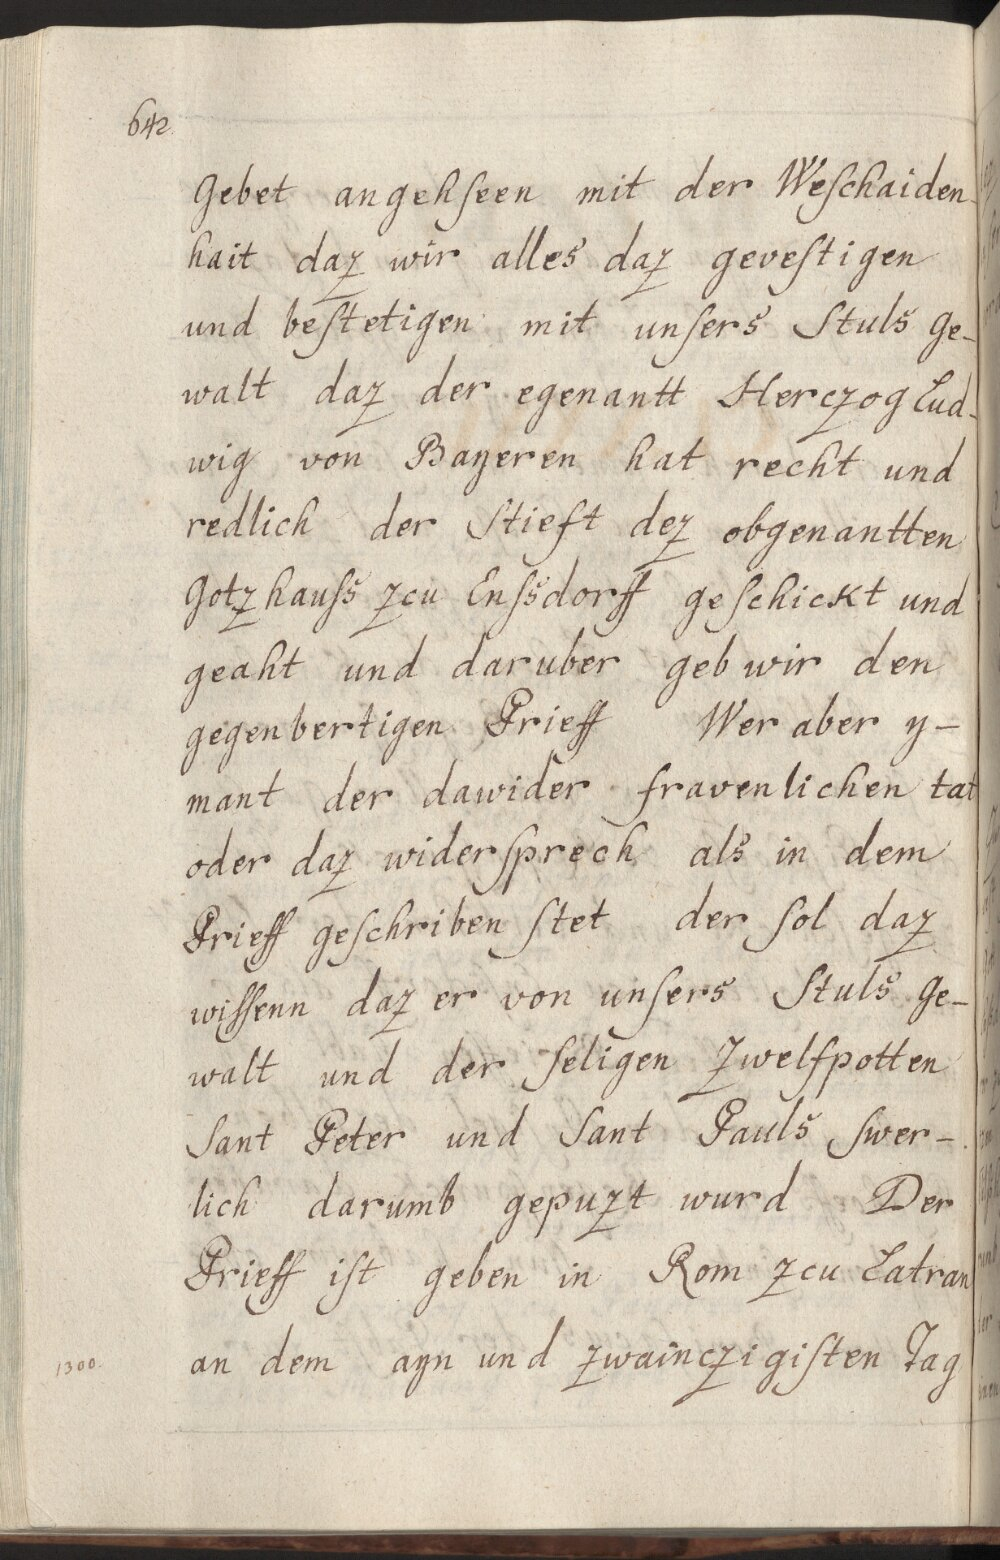 642.
Gebet angehseen mit der Weschaiden-
hait daz wir alles daz gevestigen
und bestetigen mit unsers Stuls Ge-
walt daz der egenantt Herczog Lud-
wig von Bayeren hat recht und
redlich der Stieft dez obgenantten
Gotzhauss zcu Enssdorff geschickt und
geaht und daruber geb wir den
gegenbertigen Prieff Wer aber y-
mant der dawider fravenlichen tat
oder daz widersprech als in dem
Prieff geschriben stet der sol daz
wissenn daz er von unsers Stuls Ge-
walt und der seligen Zwelfpotten
Sant Peter und Sant Pauls swer-
lich darumb gepuzt wurd Der
Prieff ist geben in Rom zcu Latran
1300. an dem ayn und zwainczigisten Tag